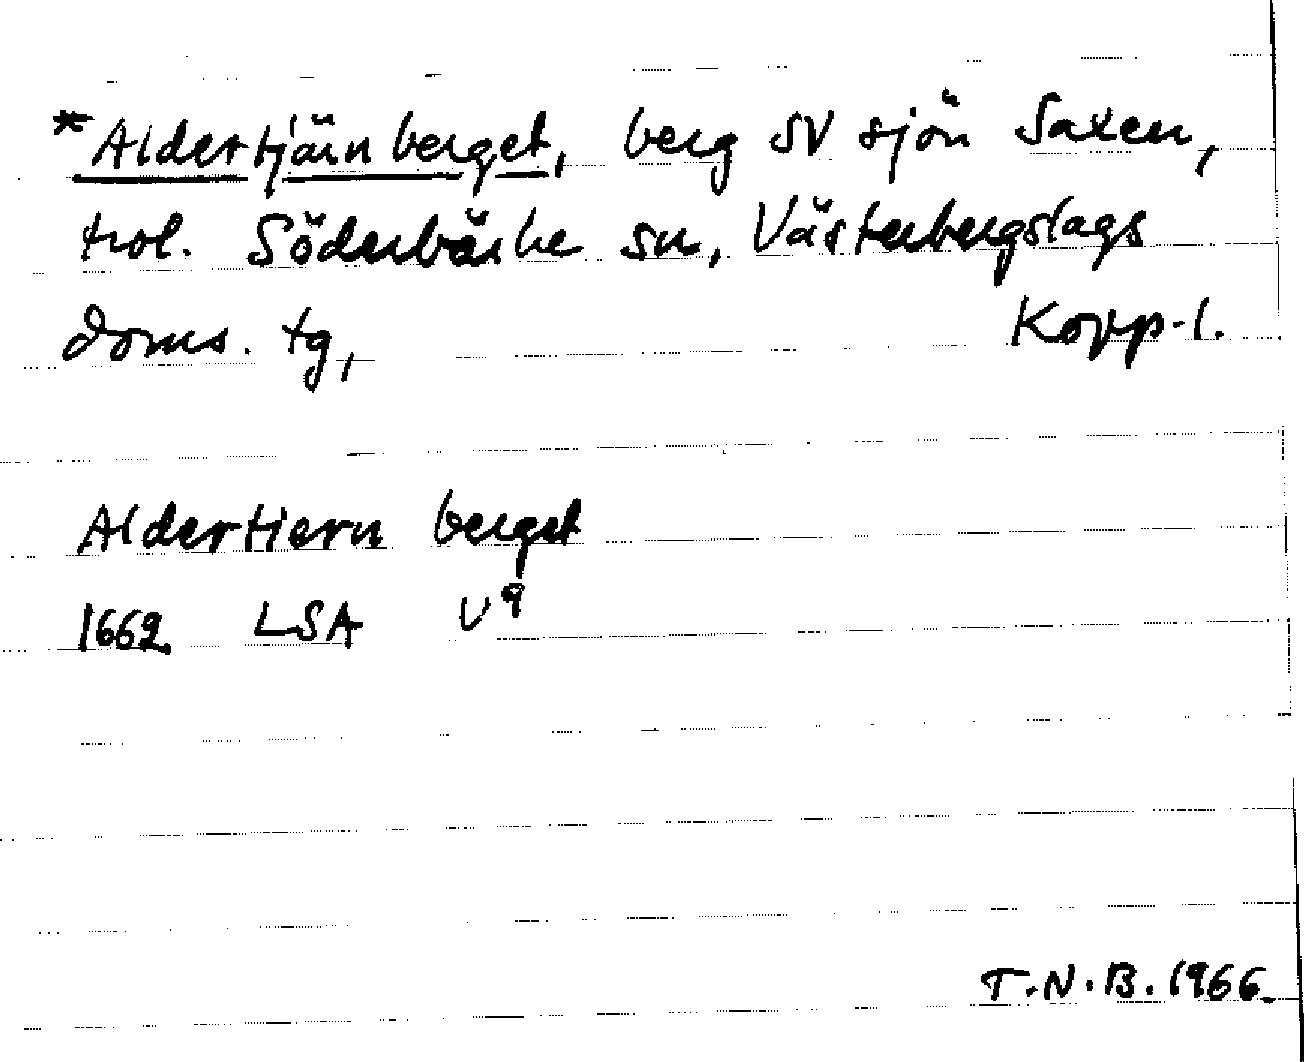 *Aldertjärnberget, berg SV sjön Saxen,
trol. Söderbärke sn, Västerbergslags
doms. tg, Kopp-l.
AlderTiern berget
1662 LSA U⁹
T.N.B. 1966.